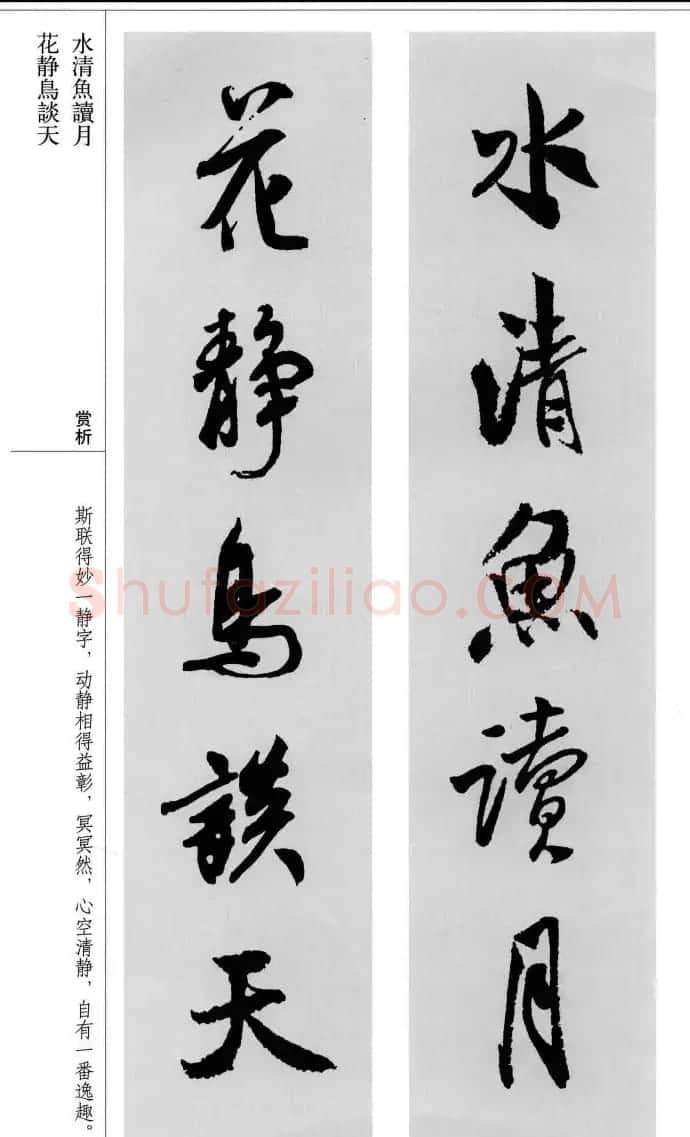 水清魚讀月
花静鳥談天
水清魚讀月
花静鳥談天
赏析
斯联得妙一静字，动静相得益彰，冥冥然，心空清静，自有一番逸趣。
Shufaziliao.COM